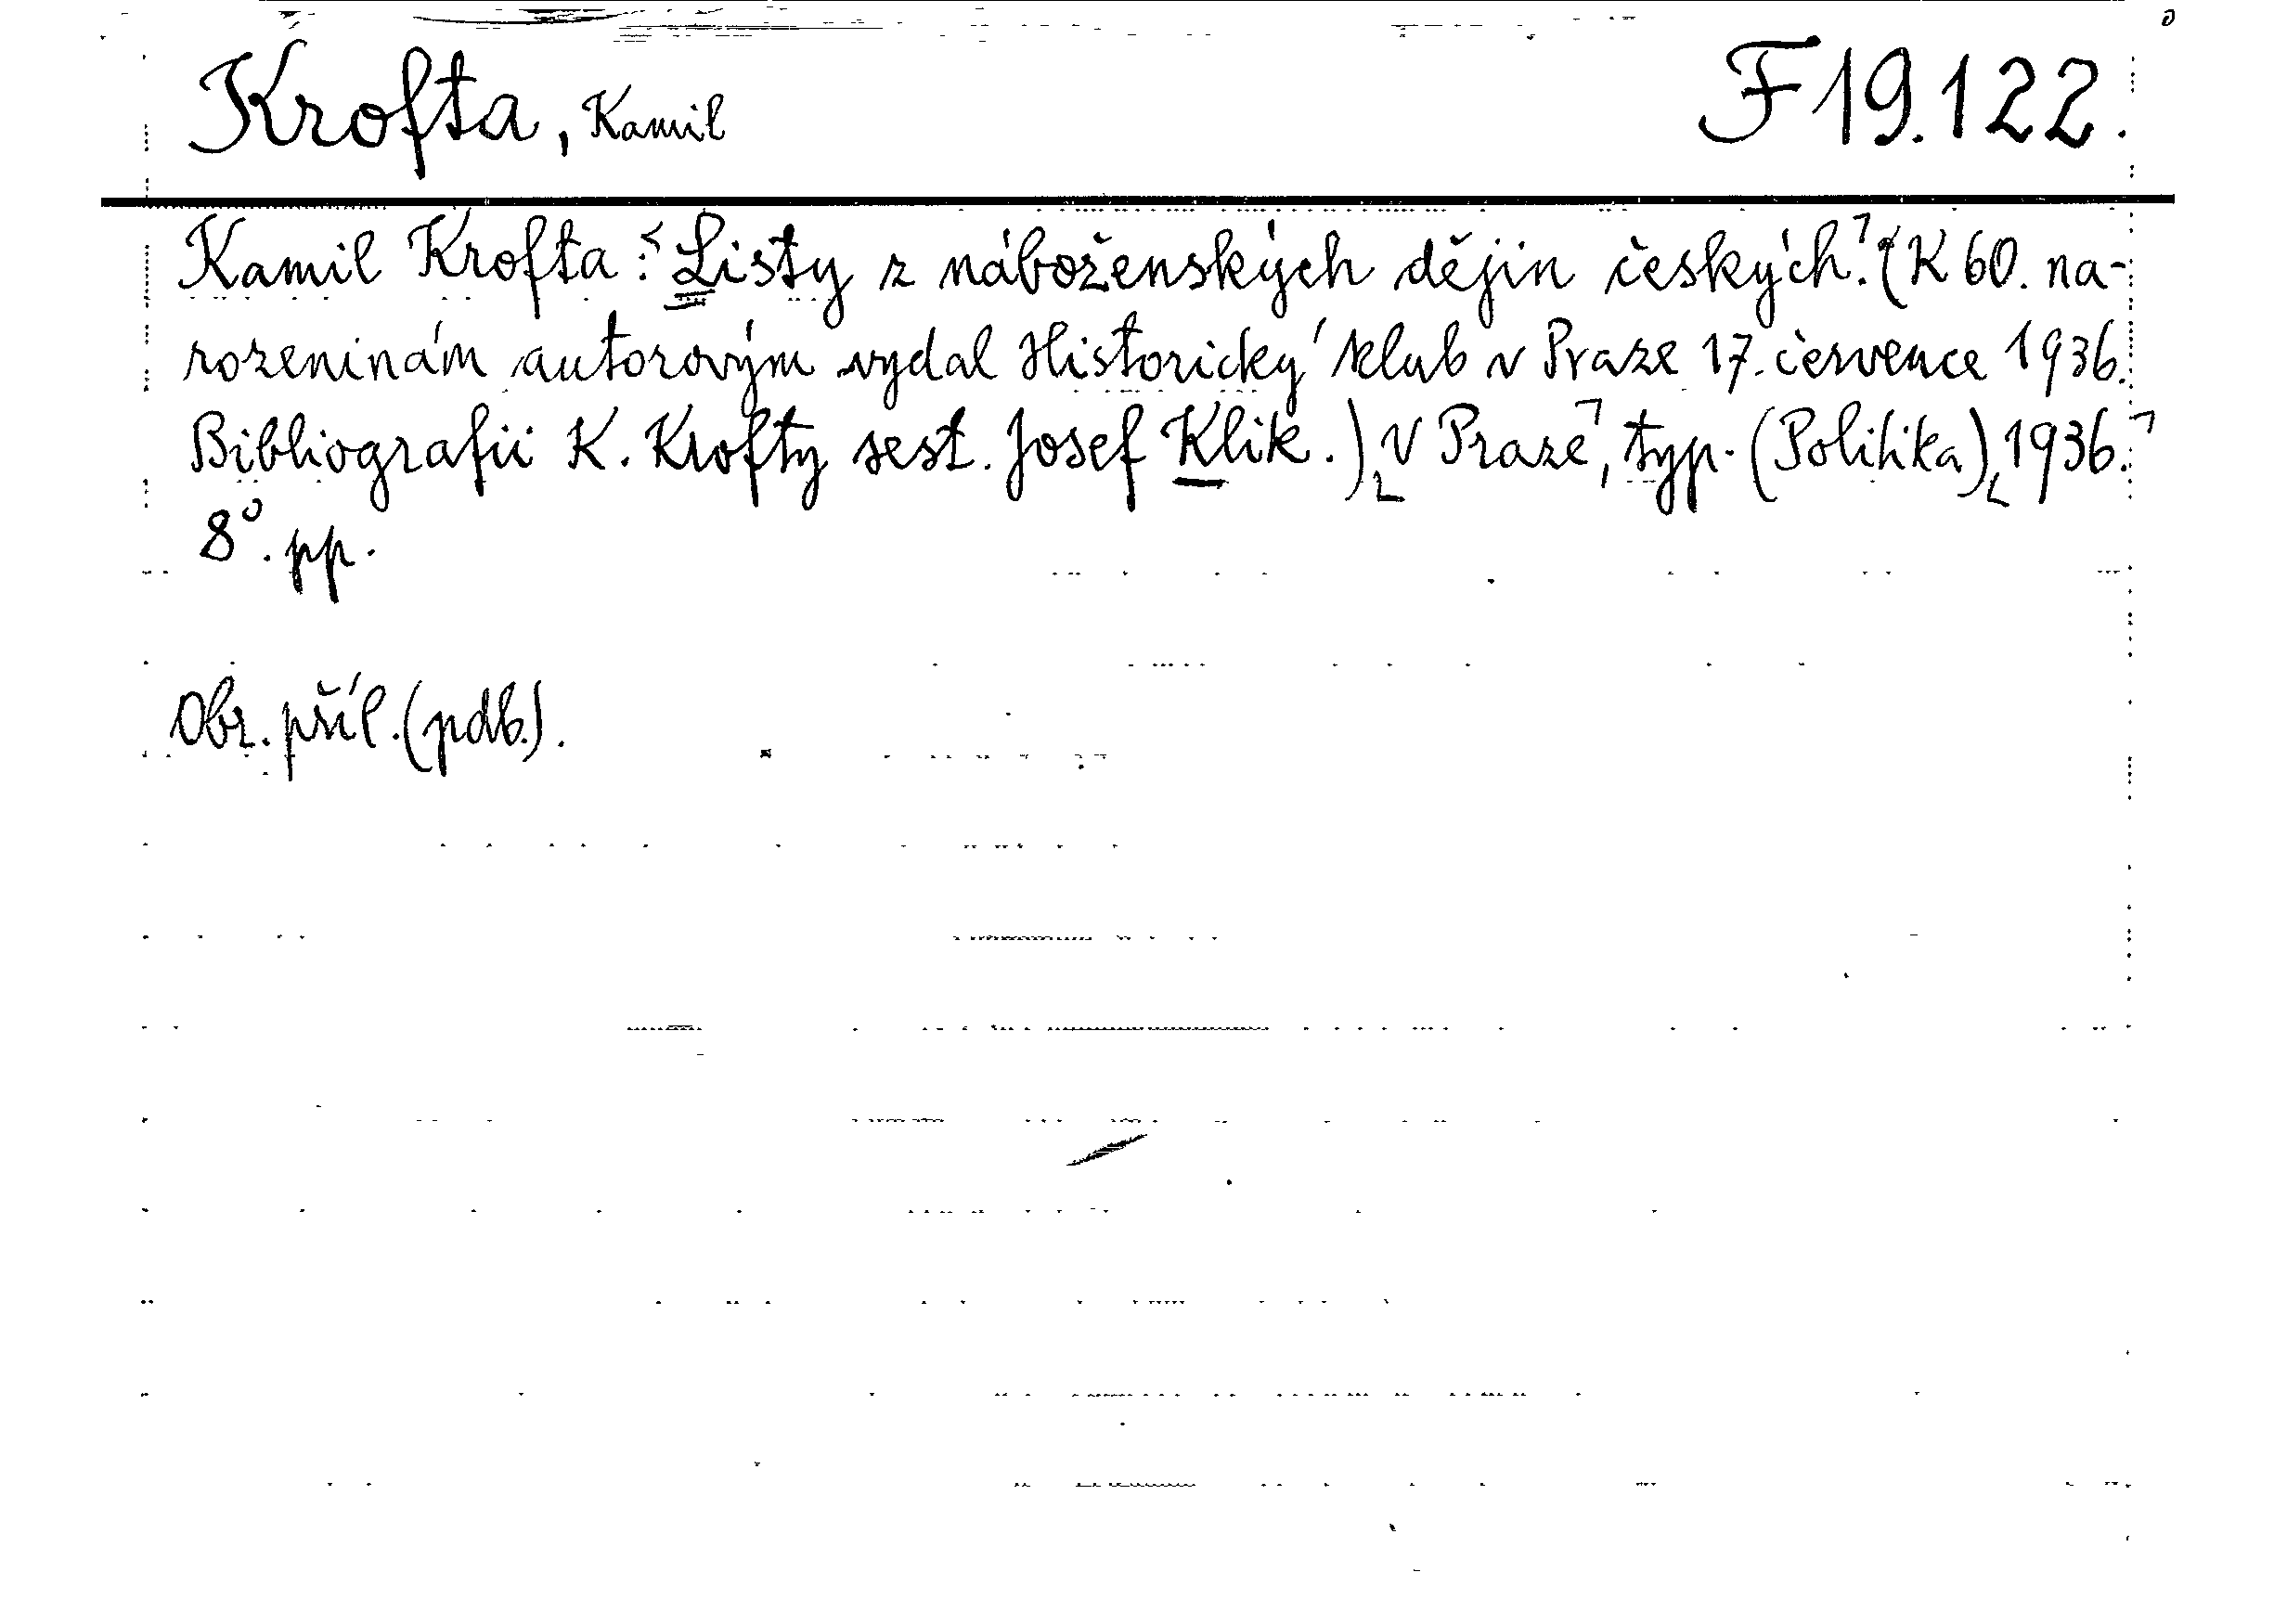 Krofta, Kamil F 19.122.
Kamil Krofta: Listy z náboženských dějin českých. (K 60. na-
rozeninám autorovým vydal Historický klub v Praze 17. července 1936.
Bibliografii K. Krofty sest. Josef Klik.) V Praze, typ. (Politika), 1936.
8°. pp.
Obr. příl. (pdb.).